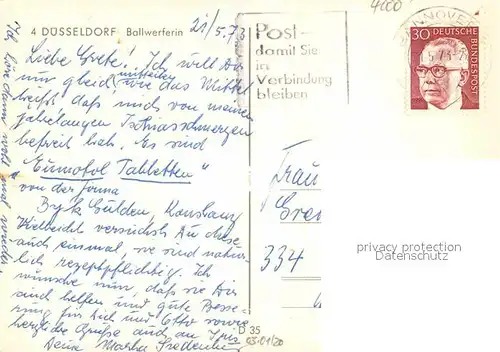 4 DÜSSELDORF Ballwerferin
21/5.73
Liebe Grete! Ich will Dir
nur gleich mitteilen wie das Mittel
heißt, daß mich von meinen
jahrelangen Ischiasschmerzen
befreit hat. Es sind
"Eumotol Tabletten"
von der Firma
Byk Gulden, Konstanz
Vielleicht versuchst Du diese
auch einmal, sie sind natür-
lich rezeptpflichtig. Ich
wünsche nun, daß sie Dir
auch helfen und gute Besse-
rung für Dich und Otto sowie
herzliche Grüße auch an
Deine Martha
Post-
damit Sie
in
Verbindung
bleiben
4000
HANNOVER
5.73
30 DEUTSCHE
BUNDESPOST
Frau
334
privacy protection
Datenschutz
D 35
03.01/20